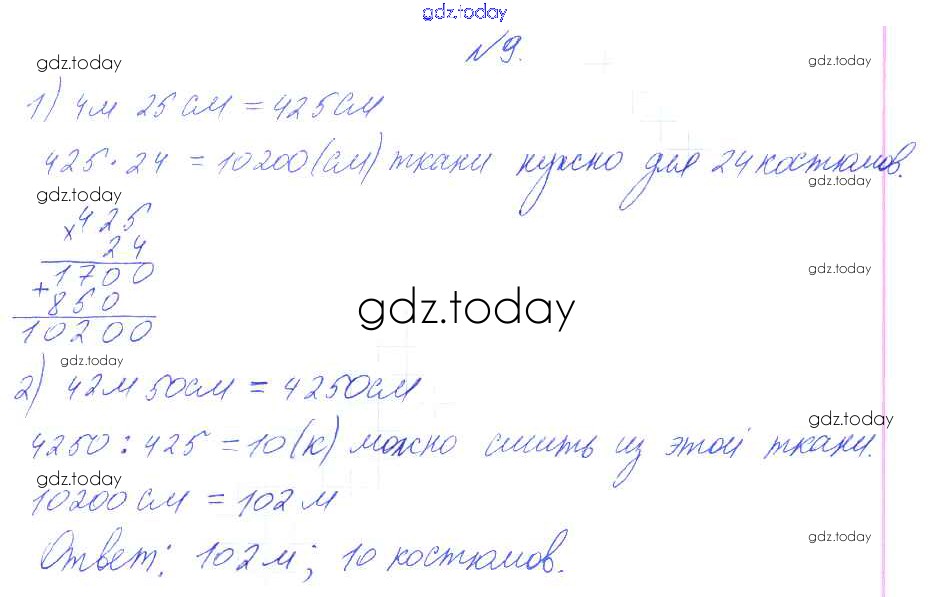 gdz.today
№9.
gdz.today gdz.today
1) 4м 25см = 425см
425·24 = 10200(см) ткани нужно для 24 костюмов.
gdz.today gdz.today
×425
24
gdz.today
+1700
850
gdz.today
10200
gdz.today
2) 42м 50см = 4250см
gdz.today
4250:425 = 10(к) можно сшить из этой ткани.
gdz.today
10200см = 102м
gdz.today
Ответ: 102м; 10 костюмов.